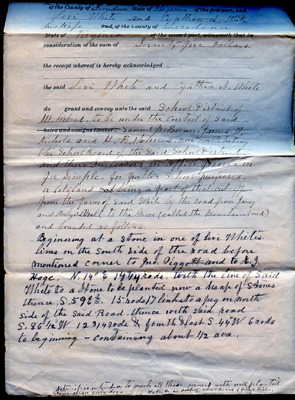 is of the County of Loudoun State of Virginia of the first part, and
Levi White and Cynthia S. White
his wife and, of the County of
State of Virginia of the second part, witnesseth, that in
consideration of the sum of Seventy five Dollars
the receipt whereof is hereby acknowledged
the said Levi White and Cynthia S. White
do grand and convey unto the said School District of
Mt. Gilead, to be under the control of said
heirs and assigns forever Samuel James M.
Nichols and H. now constituting
the School Board of the said School District
and their Successors in Office forever in
fee simple, for public School purposes,
a lot of land being a part of that cut off
from the farm of said White by the road from
and to the same (called the Mountain road)
and bounded as follows.
Beginning at a stone in one of Levi White's
lines on the South side of the road before
mentioned corner to Piggott and to E. J.
Hoge. N. 14° E 19 rods with the line of Said
White to a stone to be planted, now a heap of stones
thence, S. 59 E. 15 rods 17 links to a peg on North
side of the said Road, thence with said road
S. 86 ½ W. 12.31 rods & fourth & last S. 44° W 6 rods
to beginning - containing about ½ acre.